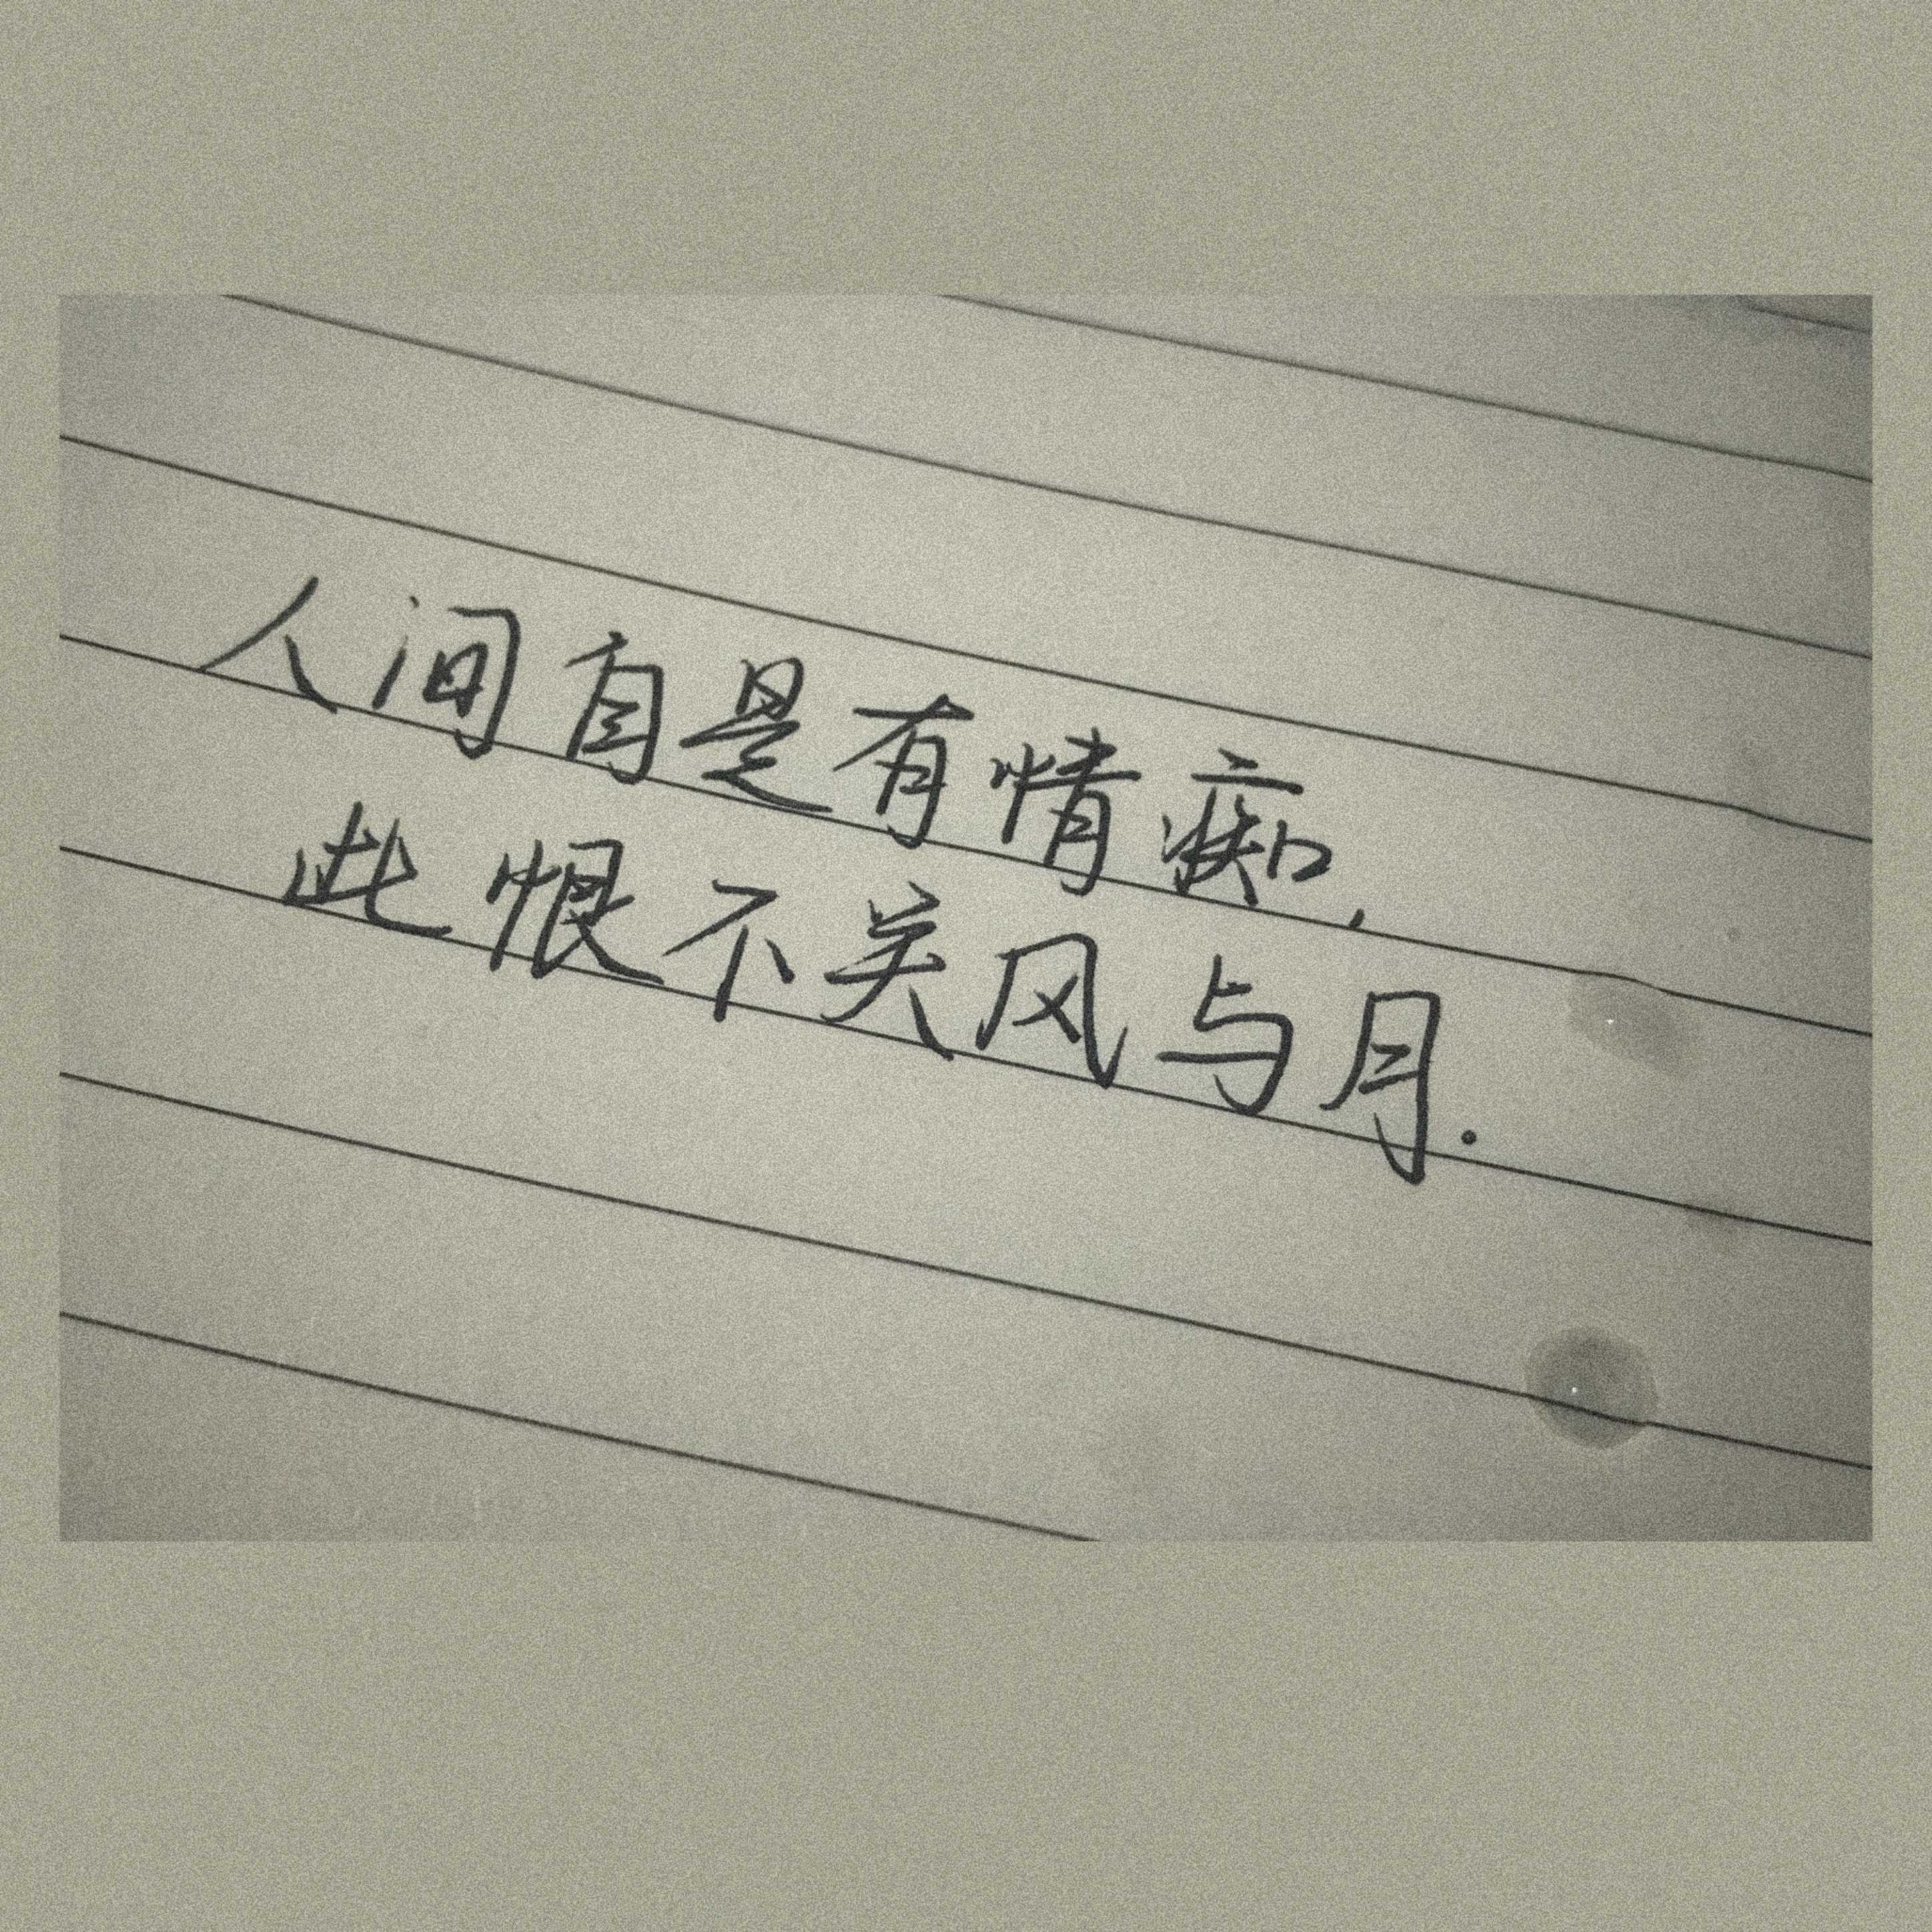 人间自是有情痴,
此恨不关风与月.